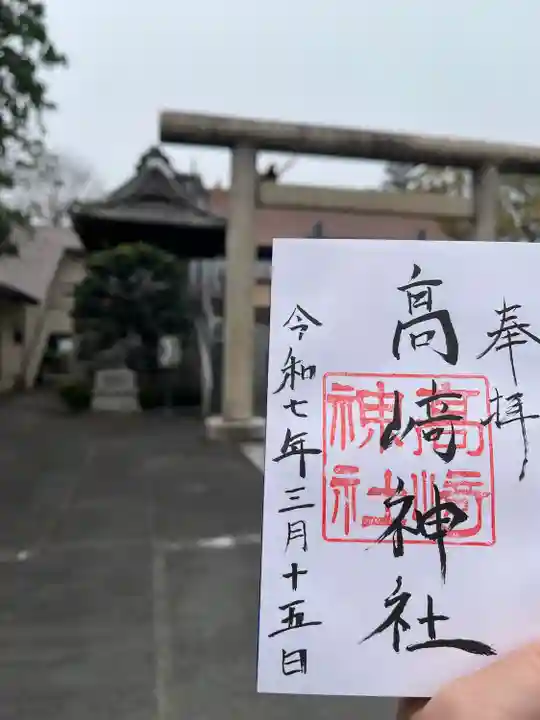 奉拝
高崎神社
高崎神社
令和七年三月十五日